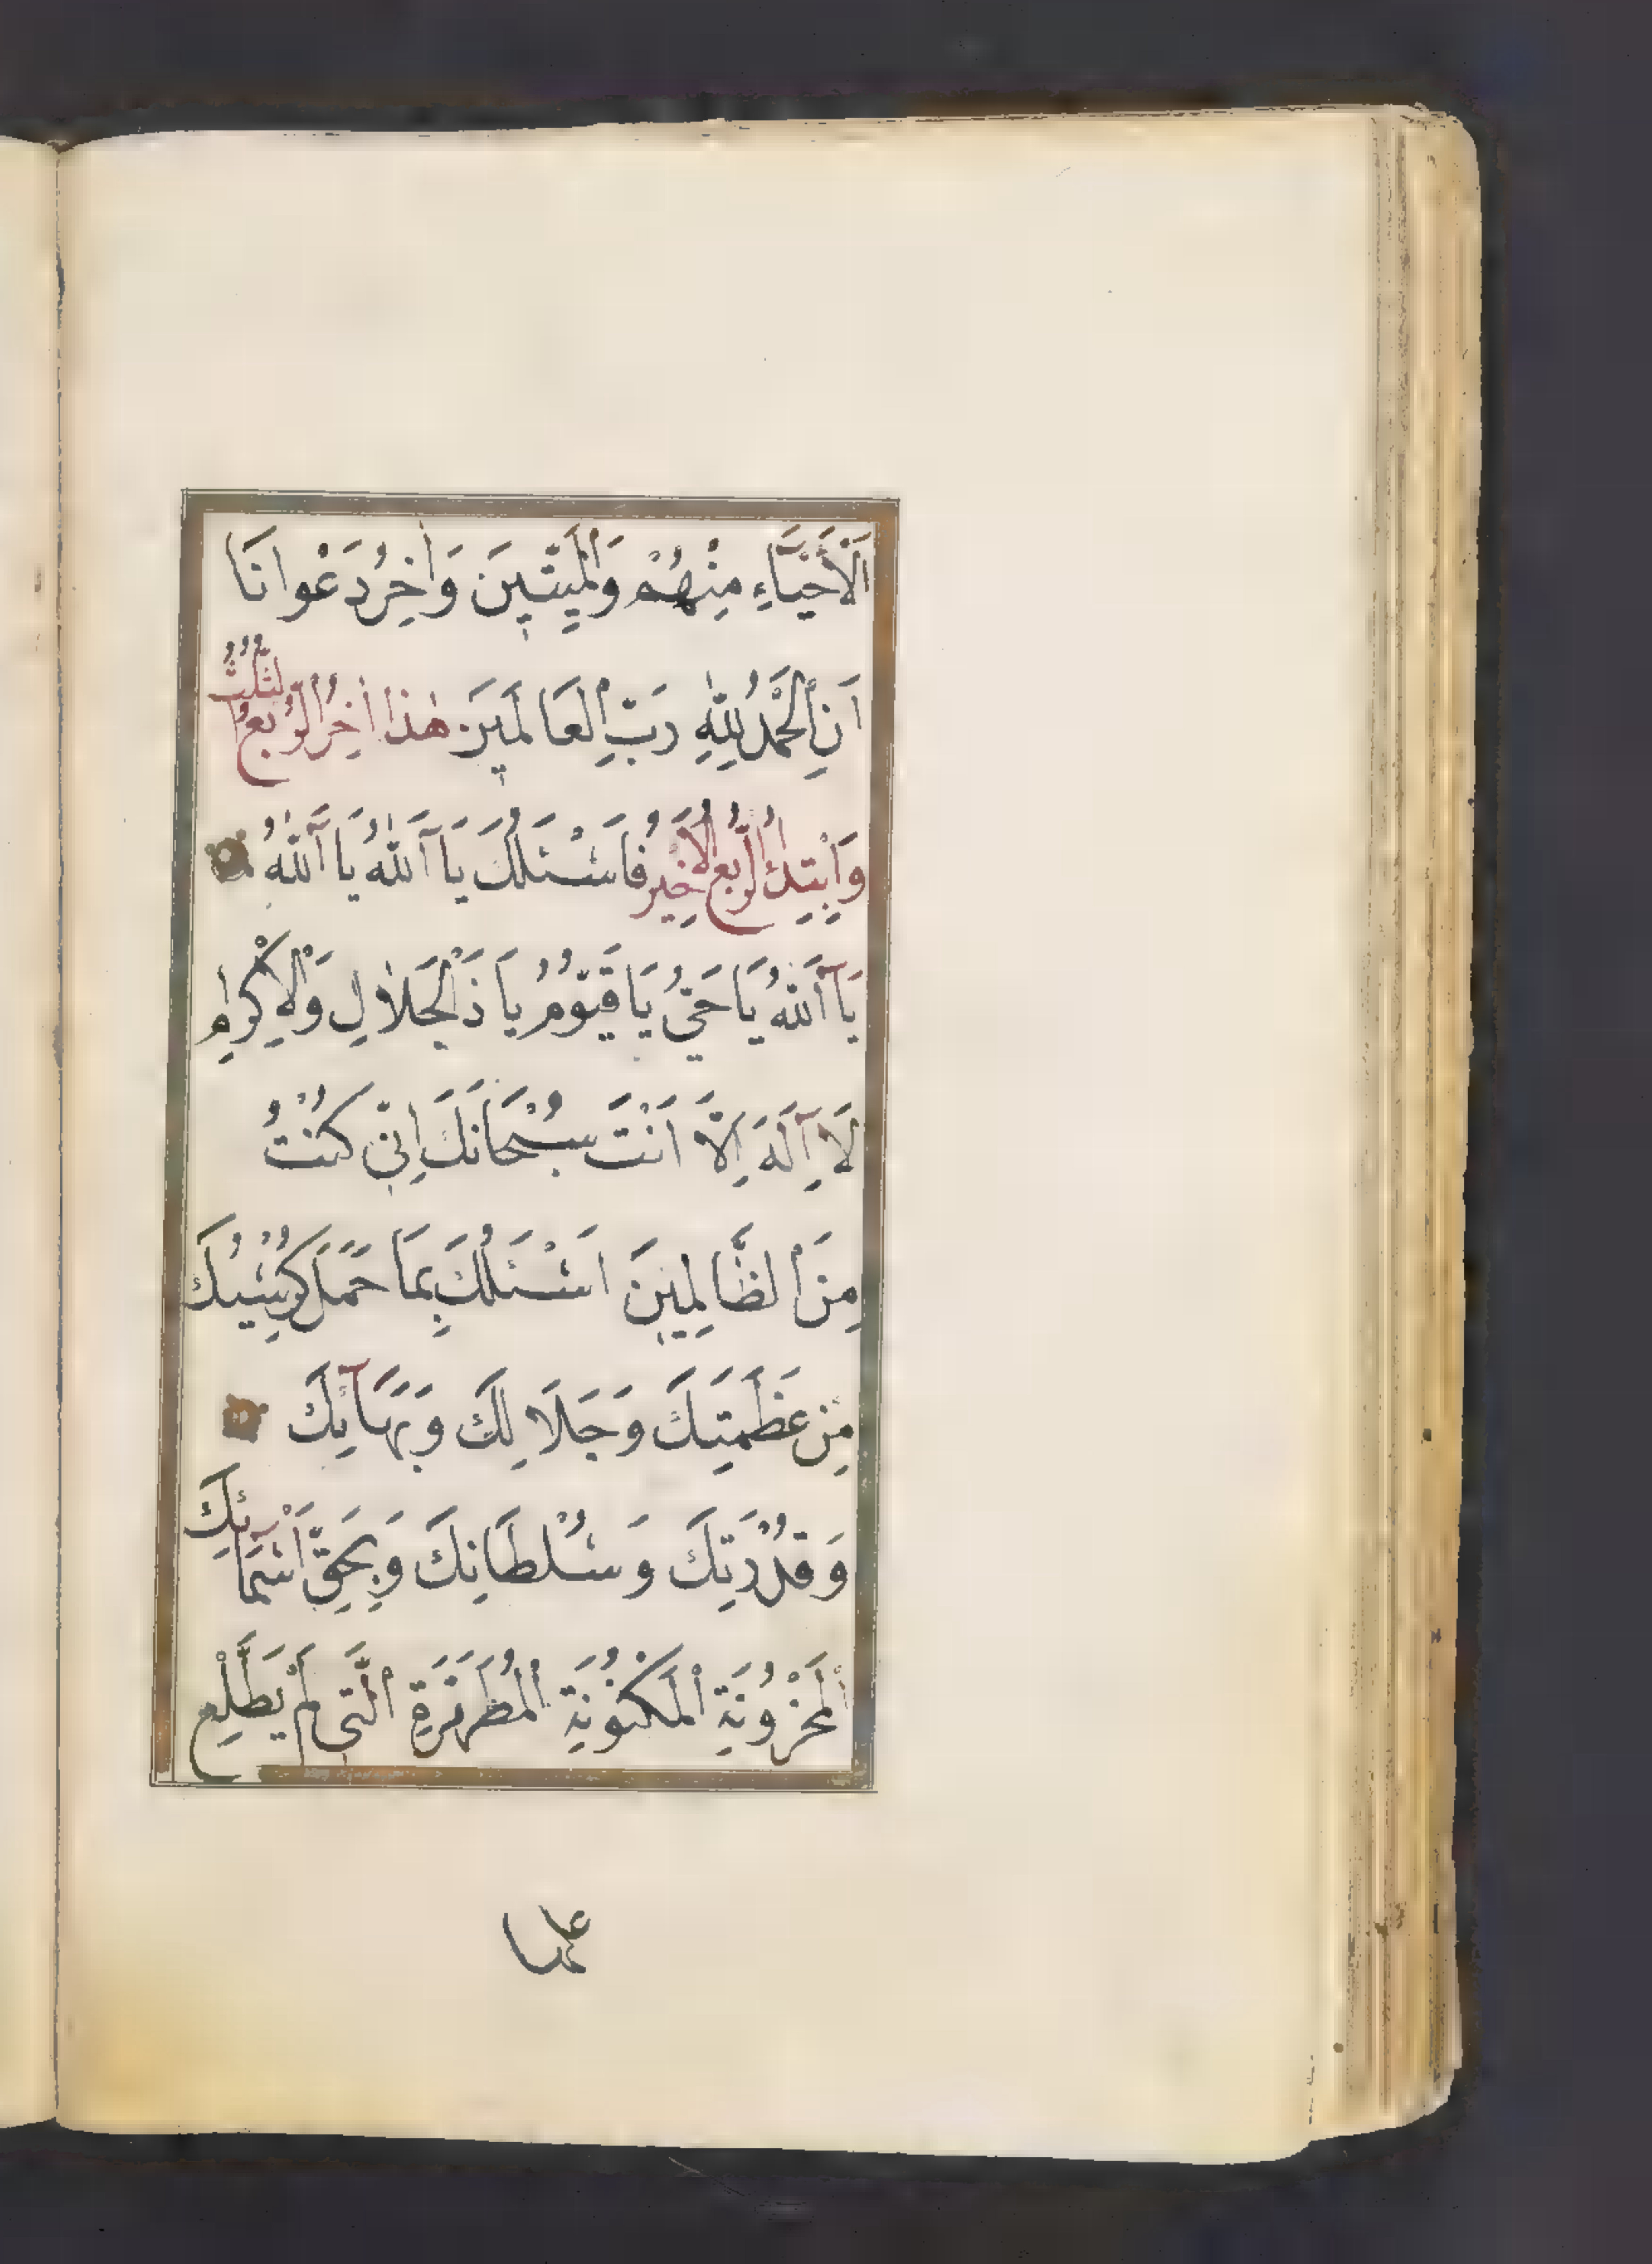 اَلْاَحْيَآءِ مِنْهُمْ وَالْمَيِّتِينَ وَاٰخِرُ دَعْوانَا
اَنِ الْحَمْدُ لِلّٰهِ رَبِّ الْعَالَمِينَ هٰذا اٰخِرُ الرُّبُعِ الثُّلُثُ
وَابْتِدَاُ الرُّبُعُ الْاَخِيرُ فَاَسْئَلُكَ يَا آَللّٰهُ يَا آَللّٰهُ
يَا آَللّٰهُ يَا حَيُّ يَا قَيُّومُ يَا ذَالْجَلَالِ وَالْاِكْرٰمِ
لَآ اِلَهَ اِلَّا اَنْتَ سُبْحَانَكَ اِنِّي كُنْتُ
مِنَ الظَّالِمِينَ اَسْئَلُكَ بِمَا حَمَلَ كُرْسِيُّكَ
مِنْ عَظَمَتِكَ وَجَلَالِكَ وَبَهَآئِكَ
وَقُدْرَتِكَ وَسُلْطَانِكَ وَبِحَقِّ اَسْمَآئِكَ
الْمَخْزُونَةِ الْمَكْنُونَةِ الْمُطَهَّرَةِ الَّتِى لَمْ يَطَّلِعْ
عليها